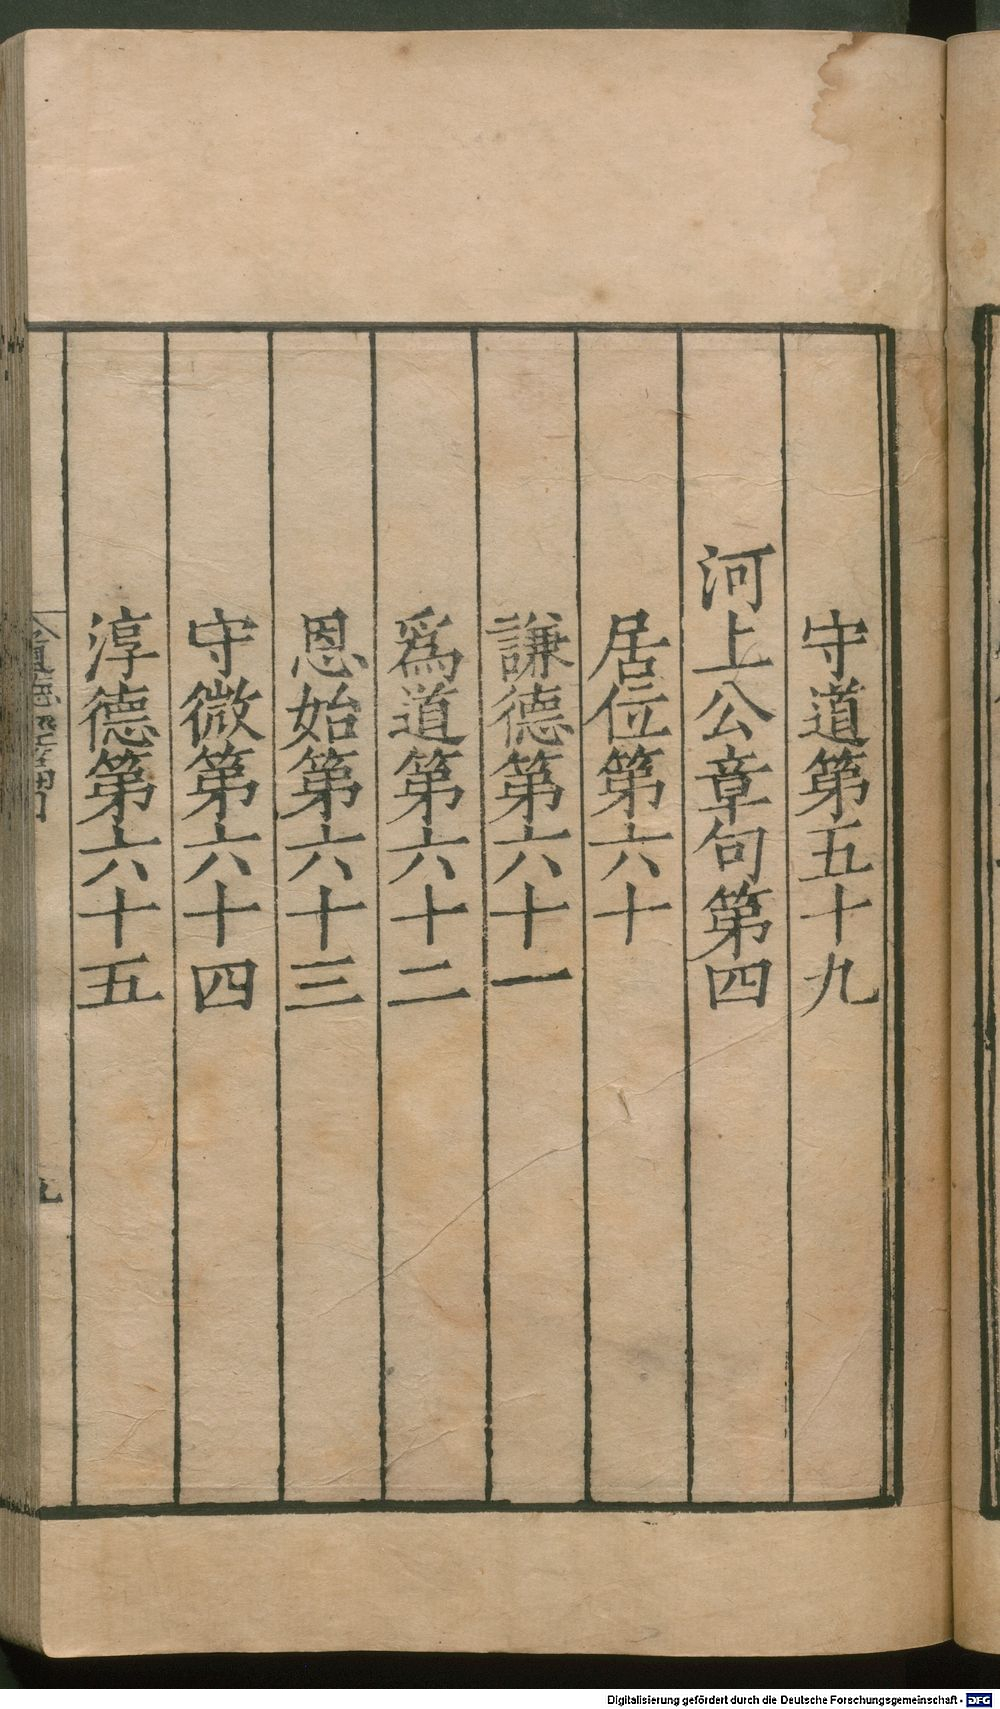 守道第五十九
河上公章句第四
居位第六十
謙德第六十一
爲道第六十二
恩始第六十三
守微第六十四
淳德第六十五
九
Digitalisierung gefördert durch die Deutsche Forschungsgemeinschaft - DFG